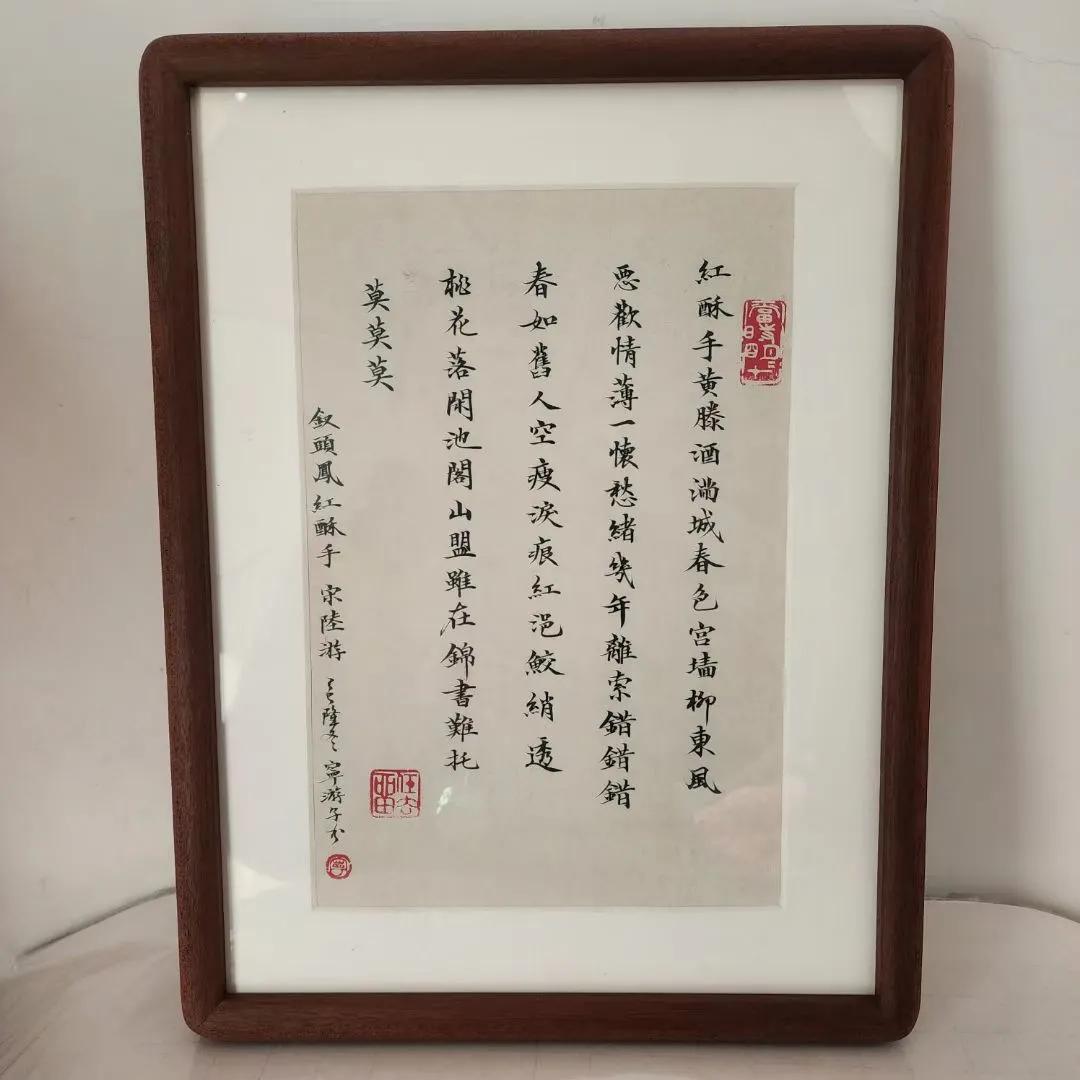 紅酥手黄滕酒滿城春色宫墻柳東風
惡歡情薄一懷愁緒幾年離索錯錯錯
春如舊人空瘦淚痕紅浥鮫綃透
桃花落閑池閣山盟雖在錦書難托
莫莫莫
釵頭鳳紅酥手 宋陸游 隆冬 寧游子书